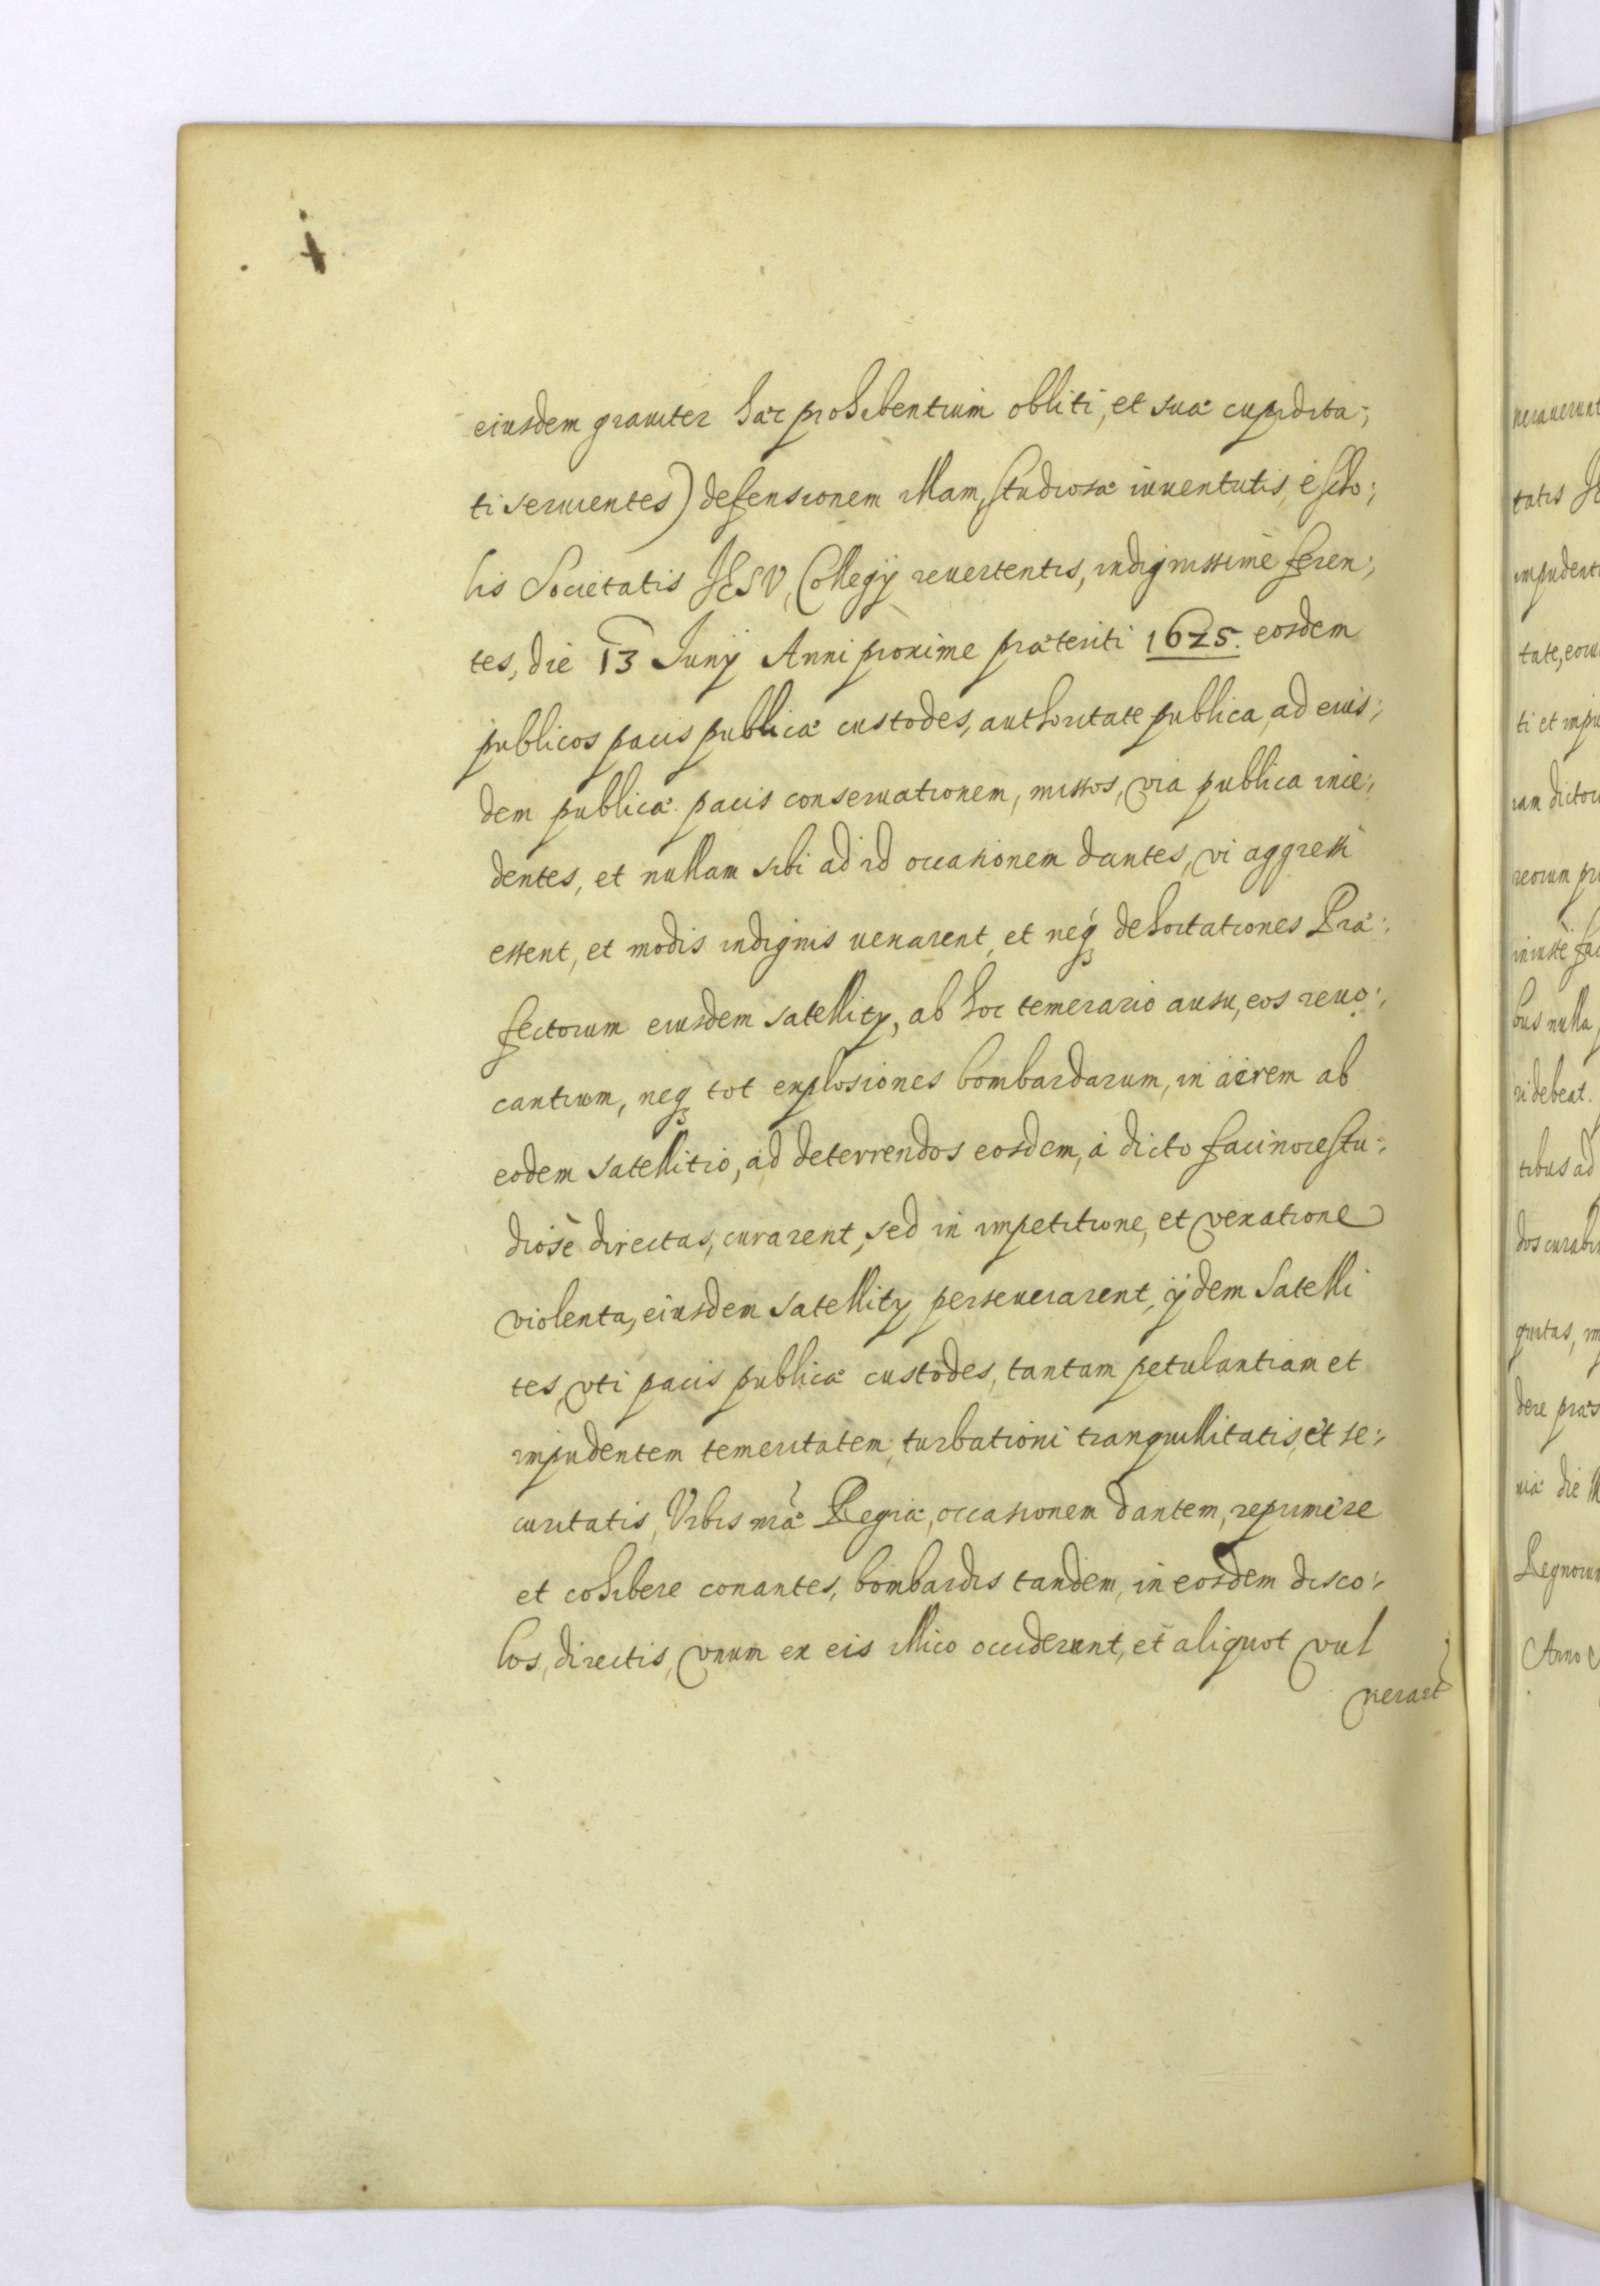 eiusdem grauiter hæc prohibentium obliti, et suæ cupidita-,
ti seruientes) defensionem illam, studiosæ iuuentutis, è scho-,
lis Societatis JESV, Collegij reuertentis, indignissimè feren-,
tes, die 13 Junij Anni proxime præteriti 1625. eosdem
publicos pacis publicæ custodes, authoritate publica, ad eius-,
dem publicæ pacis conseruationem, missos, via publica ince-,
dentes, et nullam sibi ad id occasionem dantes, vi aggressi
essent, et modis indignis uexarent, et neq₃ dehortationes Præ-,
fectorum eiusdem satellitÿ, ab hoc temerario ausu, eos reuo-,
cantium, neq₃ tot explosiones bombardarum, in äerem ab
eodem satellitio, ad deterrendos eosdem, à dicto facinore stu-,
diosè directas, curarent, sed in impetitione, et vexatione
violenta, eiusdem satellitÿ perseuerarent, ijdem Satelli
tes, vti pacis publicæ custodes, tantam petulantiam et
impudentem temeritatem, turbationi tranquillitatis, et se-,
curitatis, Vrbis nræ Regiæ, occasionem dantem, reprimere
et cohibere conantes, bombardis tandem, in eosdem disco-,
los, directis, vnum ex eis illico occiderunt, et aliquot vul
nerart
nerauerunt
tatis
impudent
tate, eoru
ti et impu
iam dictor
reorum pr
iniustè fac
bus nulla
ri debeat.
tibus ad
dos curabi
quitas, im
dere præs
niæ die
Regnorum
Anno